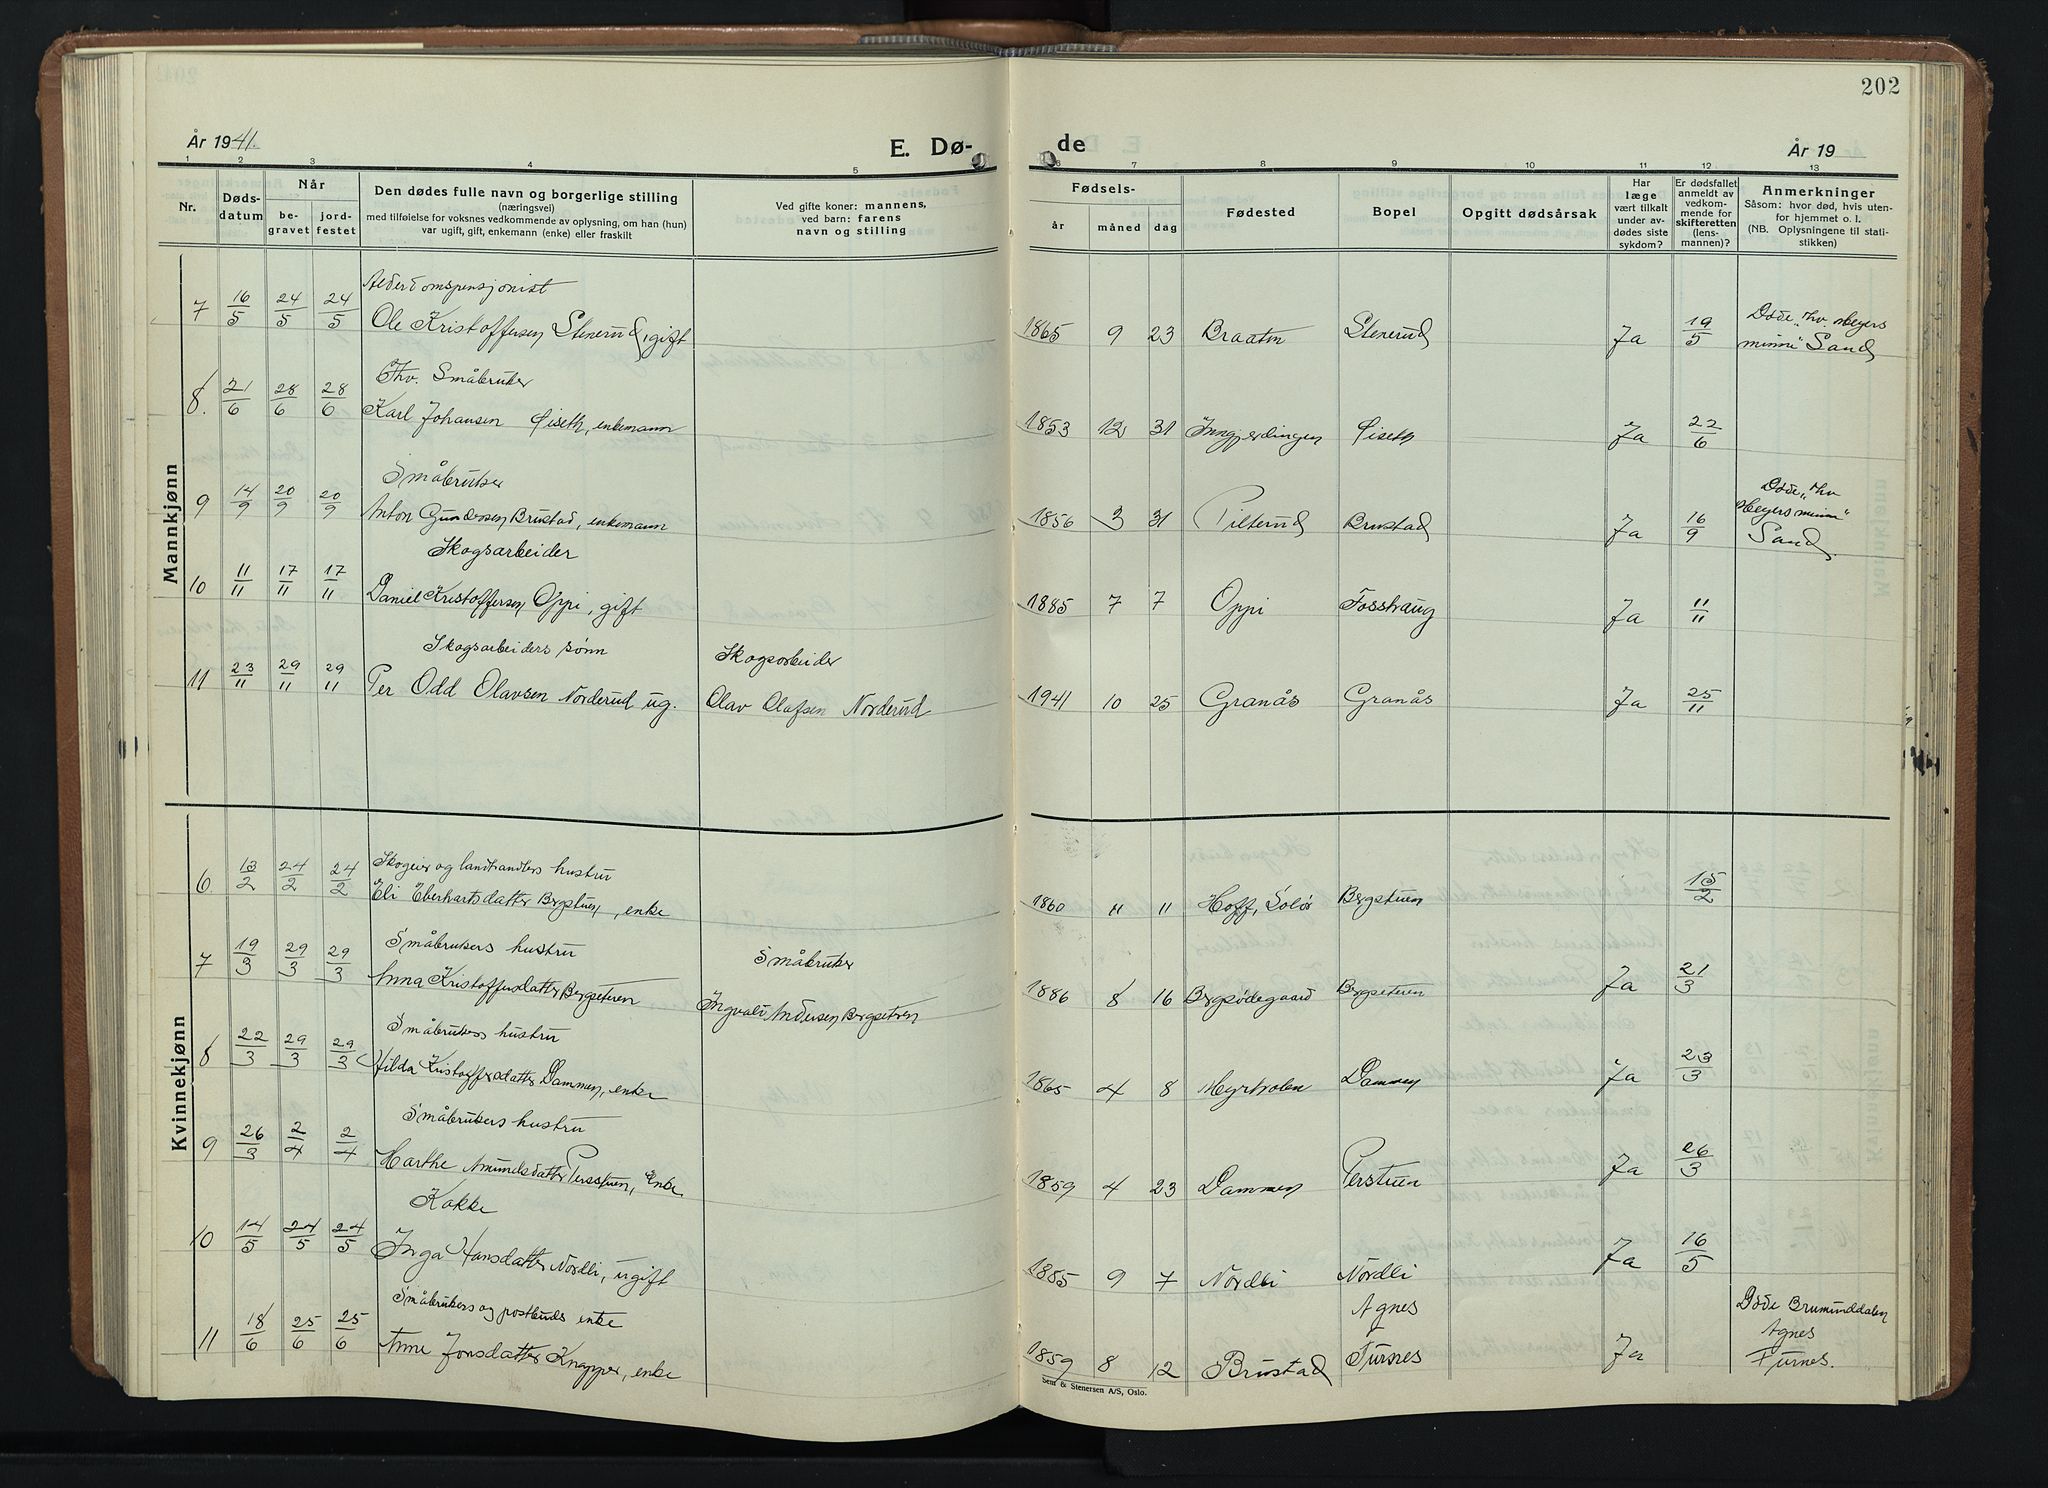 202
År 1941.
E. Dø-
de
År 19
1 2 3 4 5
6 7 8 9 10 11 12 13
Nr.
Døds-
datum
Når
be-
gravet
jord-
festet
Den dødes fulle navn og borgerlige stilling
(næringsvei)
med tilføielse for voksnes vedkommende av oplysning, om han (hun)
var ugift, gift, enkemann (enke) eller fraskilt
Ved gifte koner: mannens,
ved barn: farens
navn og stilling
Fødsels-
år måned dag
Fødested
Bopel
Opgitt dødsårsak
Har
læge
vært tilkalt
under av-
dødes siste
sykdom?
Er dødsfallet
anmeldt av
vedkom-
mende for
skifteretten
(lens-
mannen)?
Anmerkninger
Såsom: hvor død, hvis uten-
for hjemmet o. l.
(NB. Oplysningene til stati-
stikken)
Mannkjønn
Alderdomspensjonist
7 16/5 24/5 24/5 Ole Kristoffersen Stenerud, gift 1865 9 23 Braaten Stenerud Ja 19/5 Døde "Thv. Meyers
minne" Sand
Fhv. Småbruker
8. 21/6 28/6 28/6 Karl Johansen Øiseth, enkemann 1853 12 31 Inngjerdingen Øiseth Ja 22/6
Småbruker
9 14/9 20/9 20/9 Anton Gundersen Brustad, enkemann 1856 3 31 Pilterud Brustad Ja 16/9 Døde "Thv
Meyers minne"
Sand.
Skogsarbeider
10 11/11 17/11 17/11 Daniel Kristoffersen Oppi, gift 1885 7 7 Oppi Fosshaug Ja 11/11
Skogsarbeiders sønn Skogsarbeider
11 23/11 29/11 29/11 Per Odd Olavsen Norderud ug. Olav Olafsen Norderud 1941 10 25 Granås Granås Ja 25/11
Kvinnekjønn
Skogeier og landhandlers hustru
6. 13/2 24/2 24/2 Eli Eberhartsdatter Bergstuen, enke 1860 11 11 Hoff, Solør Bergstuen 15/2
Småbrukers hustru Småbruker
7 19/3 29/3 29/3 Anna Kristoffersdatter Bergseteren Ingvald Andersen Bergsetren 1886 8 16 Bergsødegaard Bergseteren Ja 21/3
Småbrukers hustru
8 22/3 29/3 29/3 Hilda Kristoffersdatter Dammen, enke 1865 4 8 Myrholen Dammen Ja 23/3
Småbrukers hustru
9 26/3 2/4 2/4 Marthe Amundsdatter Persstuen, Enke 1859 4 23 Dammen Perstuen Ja 26/3
Kokke
10 14/5 24/5 24/5 Inga Hansdatter Nordli, ugift 1885 9 7 Nordli Nordli Ja 16/5
Småbrukers og postbuds enke Agnes Døde Brumunddalen
Agnes
11 18/6 25/6 25/6 Anne Jonsdatter Knapper, enke 1859 8 12 Brustad Furnes Ja Furnes.
Sem & Stenersen A/S, Oslo.